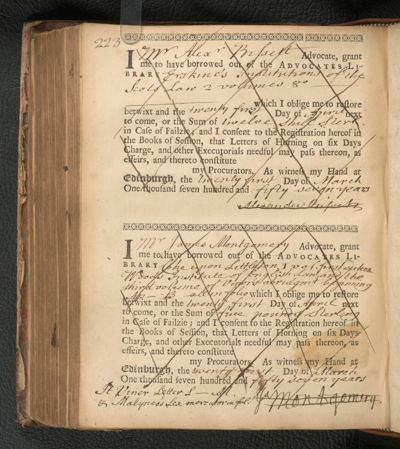 223
I Mr Alexr Bisset Advocate, grant
me to have borrowed out of the ADVOCATES LI-
BRARY Erskine's Institutions of the
Scots Law 2 volumes 8o
which I oblige me to restore
betwixt and the twenty first Day of April next
to come, or the Sum of twelve Shill. Sterl.
in Case of Failzie; and I consent to the Registration hereof in
the Books of Session, that Letters of Horning on six Days
Charge, and other Executorials needful may pass thereon, as
effeirs, and thereto constitute
my Procurators. As witness my Hand at
Edinburgh, the twenty first Day of March
One thousand seven hundred and fifty seven years
Alexander Bisset
I Mr James Montgomery Advocate, grant
me to have borrowed out of the ADVOCATES LI-
BRARY the Letter
Woods Institute of English Law
third volume of
which I oblige me to restore
betwixt and the twenty first Day of April next
to come, or the Sum of five pounds Sterling
in Case of Failzie; and I consent to the Registration hereof in
the Books of Session, that Letters of Horning on six Days
Charge, and other Executorials needful may pass thereon, as
effeirs, and thereto constitute
my Procurators. As witness my Hand at
Edinburgh, the twenty first Day of March
One thousand seven hundred and fifty seven years
It Viner Letter L — M. Ja Montgomery
& Malyness Lex mercatoria